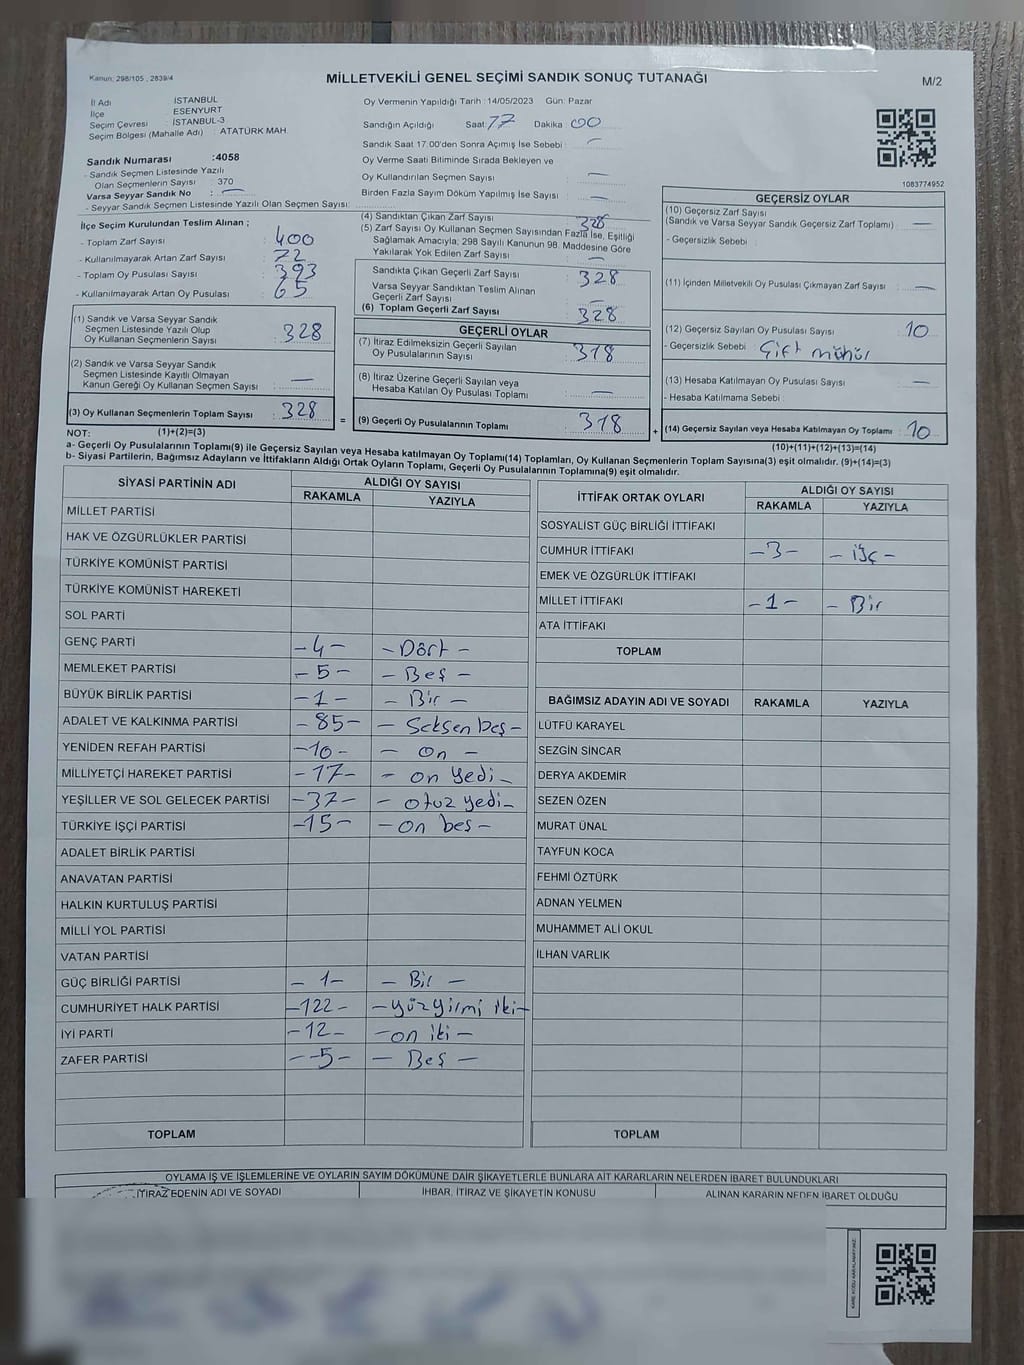 Kanun; 298/105 , 2839/4
MİLLETVEKİLİ GENEL SEÇİMİ SANDIK SONUÇ TUTANAĞI
M/2
İl Adı İSTANBUL
İlçe ESENYURT
Seçim Çevresi : İSTANBUL-3
Seçim Bölgesi (Mahalle Adı) : ATATÜRK MAH.
Sandık Numarası :4058
- Sandık Seçmen Listesinde Yazılı
Olan Seçmenlerin Sayısı : 370
Varsa Seyyar Sandık No : —
- Seyyar Sandık Seçmen Listesinde Yazılı Olan Seçmen Sayısı:
Oy Vermenin Yapıldığı Tarih :14/05/2023 Gün: Pazar
Sandığın Açıldığı Saat: 17 Dakika 00
Sandık Saat 17.00'den Sonra Açımış İse Sebebi : —
Oy Verme Saati Bitiminde Sırada Bekleyen ve
Oy Kullandırılan Seçmen Sayısı —
Birden Fazla Sayım Döküm Yapılmış İse Sayısı : —
1083774952
İlçe Seçim Kurulundan Teslim Alınan ;
- Toplam Zarf Sayısı : 400
- Kullanılmayarak Artan Zarf Sayısı : 72
- Toplam Oy Pusulası Sayısı : 393
- Kullanılmayarak Artan Oy Pusulası : 65
(1) Sandık ve Varsa Seyyar Sandık
Seçmen Listesinde Yazılı Olup
Oy Kullanan Seçmenlerin Sayısı : 328
(2) Sandık ve Varsa Seyyar Sandık
Seçmen Listesinde Kayıtlı Olmayan
Kanun Gereği Oy Kullanan Seçmen Sayısı : —
(3) Oy Kullanan Seçmenlerin Toplam Sayısı : 328 =
(4) Sandıktan Çıkan Zarf Sayısı 328
(5) Zarf Sayısı Oy Kullanan Seçmen Sayısından Fazla İse, Eşitliği
Sağlamak Amacıyla; 298 Sayılı Kanunun 98. Maddesine Göre
Yakılarak Yok Edilen Zarf Sayısı —
Sandıkta Çıkan Geçerli Zarf Sayısı : 328
Varsa Seyyar Sandıktan Teslim Alınan
Geçerli Zarf Sayısı : —
(6) Toplam Geçerli Zarf Sayısı : 328
GEÇERLİ OYLAR
(7) İtiraz Edilmeksizin Geçerli Sayılan
Oy Pusulalarının Sayısı 318
(8) İtiraz Üzerine Geçerli Sayılan veya
Hesaba Katılan Oy Pusulası Toplamı : —
(9) Geçerli Oy Pusulalarının Toplamı : 318 +
GEÇERSİZ OYLAR
(10) Geçersiz Zarf Sayısı
(Sandık ve Varsa Seyyar Sandık Geçersiz Zarf Toplamı) : —
- Geçersizlik Sebebi :
(11) İçinden Milletvekili Oy Pusulası Çıkmayan Zarf Sayısı : —
(12) Geçersiz Sayılan Oy Pusulası Sayısı : 10
- Geçersizlik Sebebi : Çift mühür
(13) Hesaba Katılmayan Oy Pusulası Sayısı : —
- Hesaba Katılmama Sebebi :
(14) Geçersiz Sayılan veya Hesaba Katılmayan Oy Toplamı : 10
NOT: (1)+(2)=(3)
(10)+(11)+(12)+(13)=(14)
a- Geçerli Oy Pusulalarının Toplamı(9) ile Geçersiz Sayılan veya Hesaba katılmayan Oy Toplamı(14) Toplamları, Oy Kullanan Seçmenlerin Toplam Sayısına(3) eşit olmalıdır. (9)+(14)=(3)
b- Siyasi Partilerin, Bağımsız Adayların ve İttifakların Aldığı Ortak Oyların Toplamı, Geçerli Oy Pusulalarının Toplamına(9) eşit olmalıdır.
SİYASİ PARTİNİN ADI ALDIĞI OY SAYISI
RAKAMLA YAZIYLA
MİLLET PARTİSİ
HAK VE ÖZGÜRLÜKLER PARTİSİ
TÜRKİYE KOMÜNİST PARTİSİ
TÜRKİYE KOMÜNİST HAREKETİ
SOL PARTİ
GENÇ PARTİ -4- -Dört-
MEMLEKET PARTİSİ -5- -Beş-
BÜYÜK BİRLİK PARTİSİ -1- -Bir-
ADALET VE KALKINMA PARTİSİ -85- -Seksen beş-
YENİDEN REFAH PARTİSİ -10- - On -
MİLLİYETÇİ HAREKET PARTİSİ -17- - on yedi-
YEŞİLLER VE SOL GELECEK PARTİSİ -37- - otuz yedi-
TÜRKİYE İŞÇİ PARTİSİ -15- -On beş-
ADALET BİRLİK PARTİSİ
ANAVATAN PARTİSİ
HALKIN KURTULUŞ PARTİSİ
MİLLİ YOL PARTİSİ
VATAN PARTİSİ
GÜÇ BİRLİĞİ PARTİSİ - 1- - Bir -
CUMHURİYET HALK PARTİSİ -122- -yüz yirmi iki-
İYİ PARTİ -12- -on iki-
ZAFER PARTİSİ --5- - Beş -
TOPLAM
İTTİFAK ORTAK OYLARI ALDIĞI OY SAYISI
RAKAMLA YAZIYLA
SOSYALİST GÜÇ BİRLİĞİ İTTİFAKI
CUMHUR İTTİFAKI -3- - üç -
EMEK VE ÖZGÜRLÜK İTTİFAKI
MİLLET İTTİFAKI -1- - Bir
ATA İTTİFAKI
TOPLAM
BAĞIMSIZ ADAYIN ADI VE SOYADI RAKAMLA YAZIYLA
LÜTFÜ KARAYEL
SEZGİN SİNCAR
DERYA AKDEMİR
SEZEN ÖZEN
MURAT ÜNAL
TAYFUN KOCA
FEHMİ ÖZTÜRK
ADNAN YELMEN
MUHAMMET ALİ OKUL
İLHAN VARLIK
TOPLAM
OYLAMA İŞ VE İŞLEMLERİNE VE OYLARIN SAYIM DÖKÜMÜNE DAİR ŞİKAYETLERLE BUNLARA AİT KARARLARIN NELERDEN İBARET BULUNDUKLARI
İTİRAZ EDENİN ADI VE SOYADI İHBAR, İTİRAZ VE ŞİKAYETİN KONUSU ALINAN KARARIN NEDEN İBARET OLDUĞU